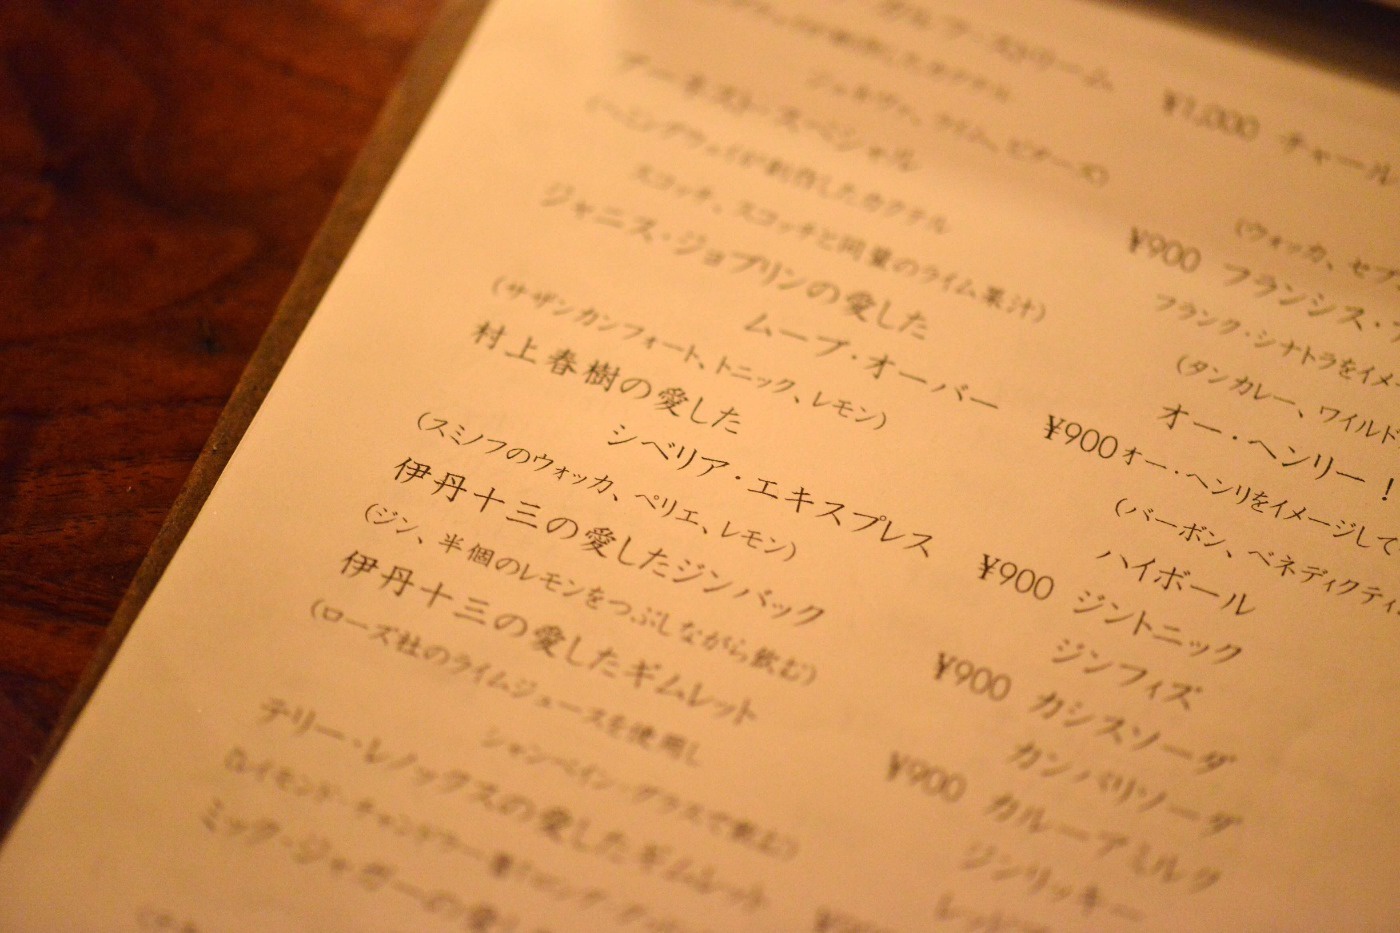 ¥1,000
アーネスト・スペシャル
(ヘミングウェイが創作したカクテル
スコッチ、スコッチと同量のライム果汁)
¥900
ジャニス・ジョプリンの愛した
ムーブ・オーバー
(サザンカンフォート、トニック、レモン)
¥900
村上春樹の愛した
シベリア・エキスプレス
(スミノフのウォッカ、ペリエ、レモン)
¥900
伊丹十三の愛したジンバック
(ジン、半個のレモンをつぶしながら飲む)
¥900
伊丹十三の愛したギムレット
(ローズ社のライムジュースを使用し
シャンペイン・グラスで飲む)
¥900
テリー・レノックスの愛したギムレット
ミック・ジャガーの愛し
チャール
(ウォッカ、セブ
フランシス・
フランク・シナトラをイメ
(タンカレー、ワイルド
オー・ヘンリー!
オー・ヘンリをイメージして
(バーボン、ベネディクティ
ハイボール
ジントニック
ジンフィズ
カシスソーダ
カンパリソーダ
カルーアミルク
ジンリッキー